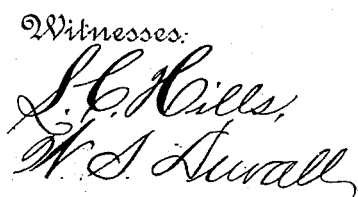 Witnesses:
L. C. Hills,
W. S. Duvall